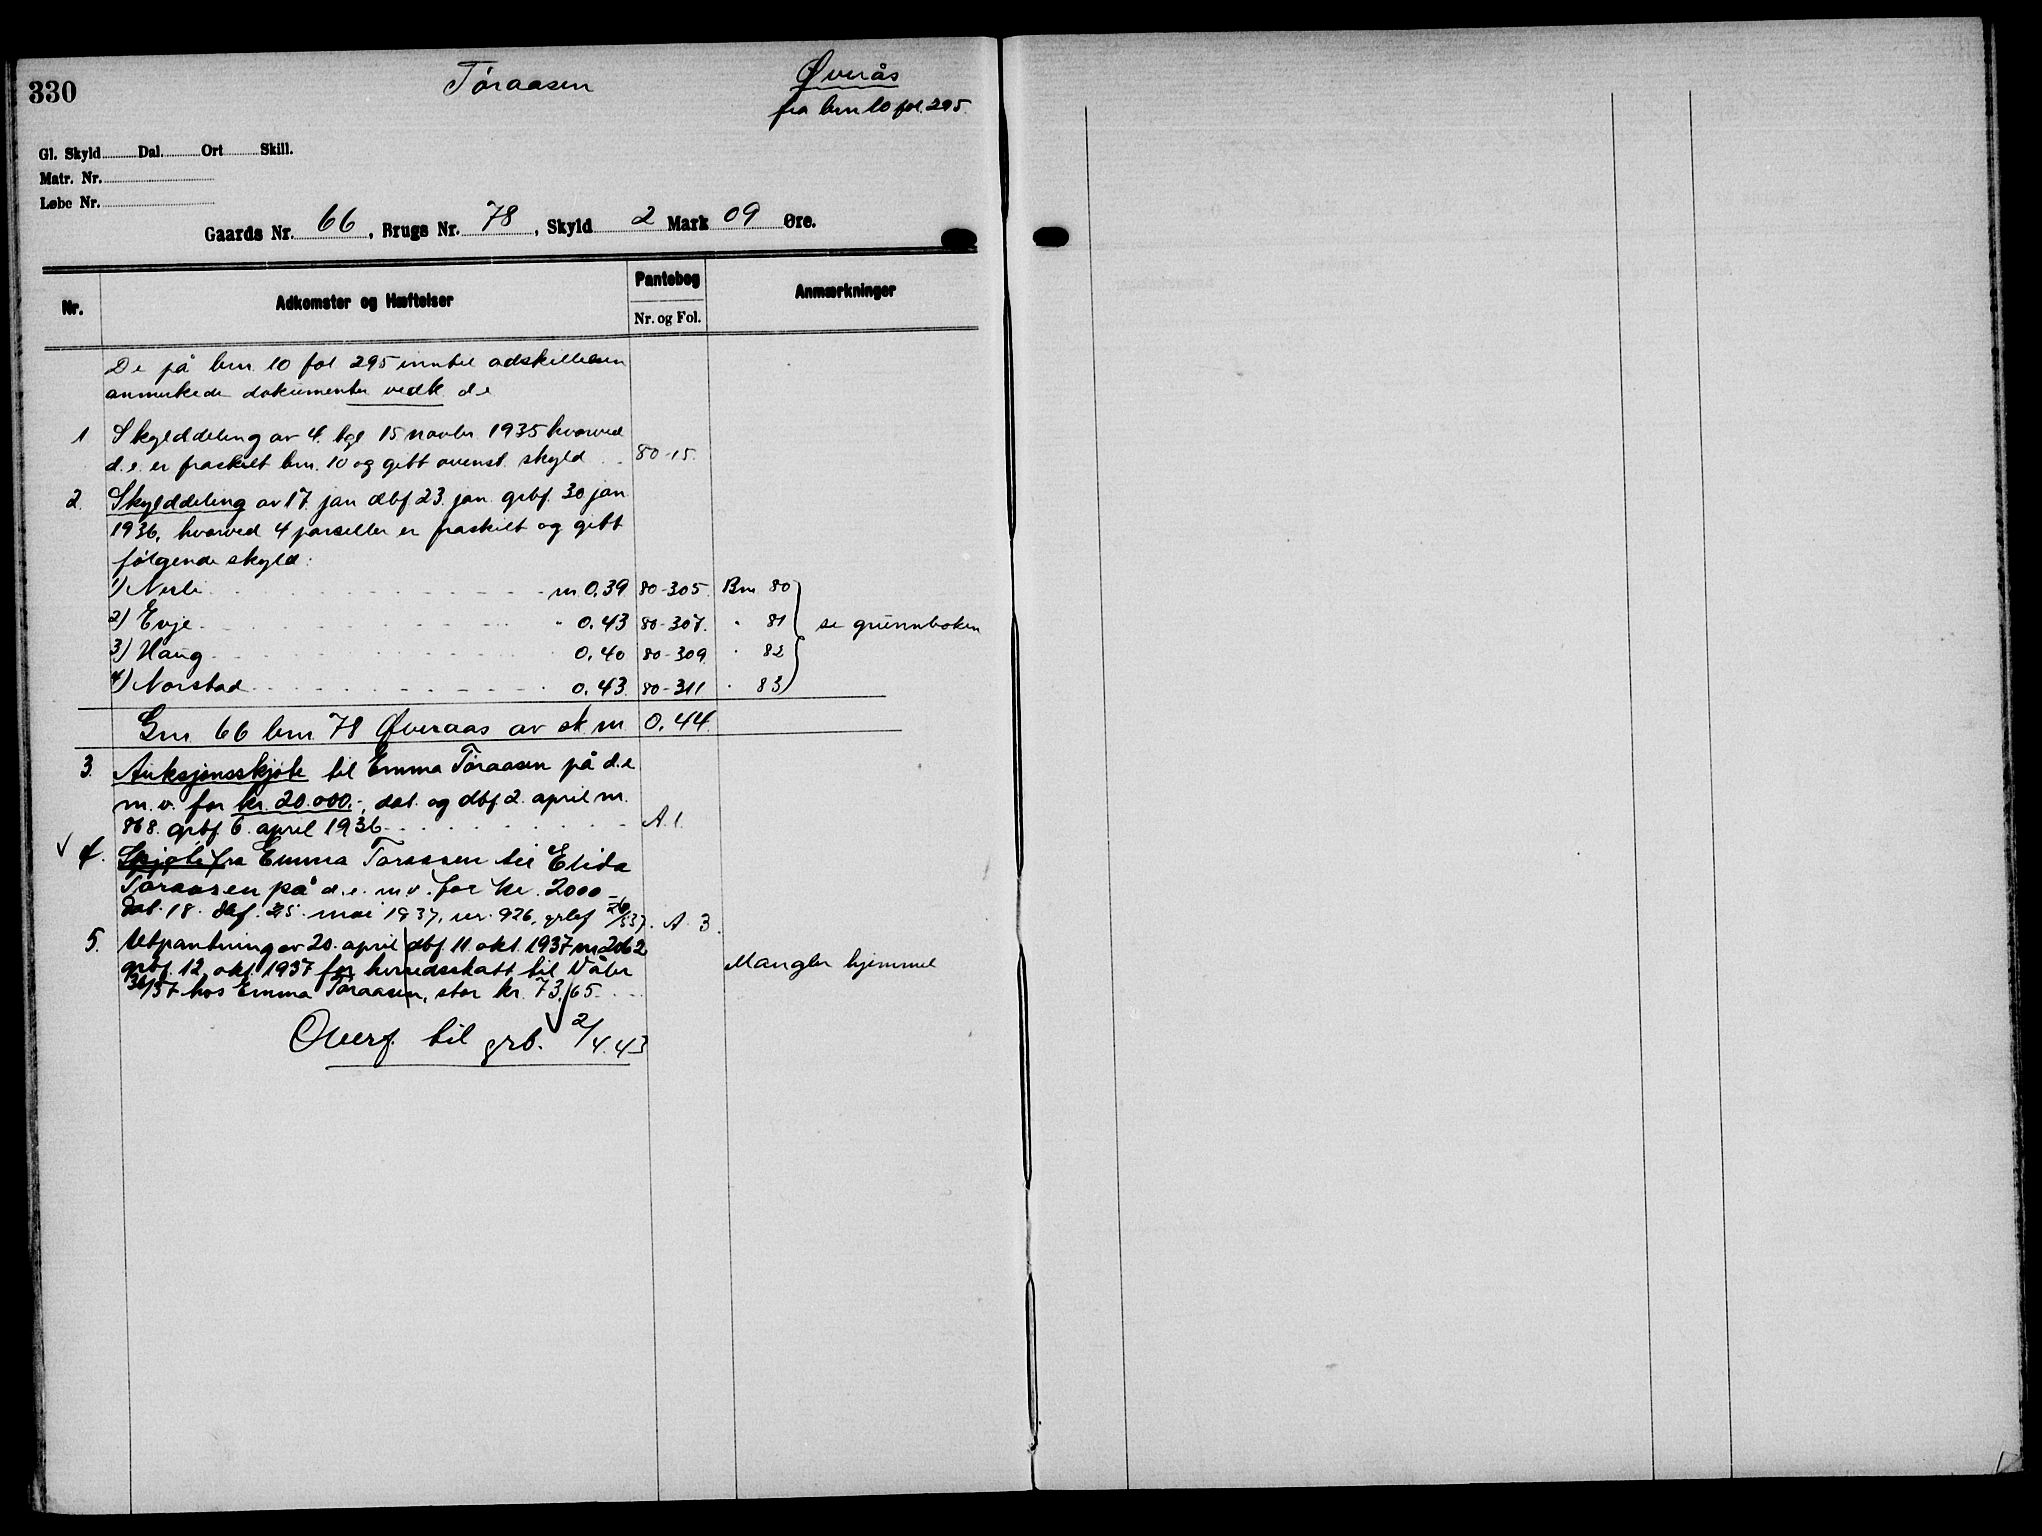 330
Tøraasen
Øverås
fra brn 10 fol. 295.
Gl. Skyld Dal. Ort Skill.
Matr. Nr.
Løbe Nr.
Gaards Nr. 66, Brugs Nr. 78, Skyld 2 Mark 09 Øre.
Nr. Adkomster og Hæftelser Pantebog Anmærkninger
Nr. og Fol.
De på brn. 10 fol 295 inntil adskillelsen
anmerkede dokumenter vedk d.e
1 Skylddeling av 4. tgl 15 novbr. 1935 hvorved
d.e. er fraskilt brn. 10 og gitt ovenst. skyld 80-15.
2. Skylddeling av 17. jan dbf 23. jan. grbf. 30 jan
1936, hvorved 4 parseller er fraskilt og gitt
følgende skyld:
1) Nerli m 0,39 80-305. Brn 80
2) Evje " 0.43 80-307. " 81 se grunnboken
3) Haug 0,40 80-309 " 82
4) Norstad 0,43. 80-311 " 83
Gnr. 66 brn. 78 Øveraas av sk m 0,44.
3. Auksjonsskjøte til Emma Tøraasen på d.e
m.v. for kr. 20.000.-, dat. og dbf 2. april nr.
868. grbf. 6. april 1936 A. 1.
4. Skjøte fra Emma Tøraasen til Elida
Tøraasen på d.e. m.v. for kr. 2000
dat. 18. dbf. 25. mai 1937, nr. 926, grbf 26/5 37. A. 3.
5. Utpantning av 20. april dbf. 11. okt. 1937 nr 2062
grbf. 12. okt. 1937 for herredsskatt til Våler
36/37 hos Emma Tøraasen, stor kr. 73,65. Mangler hjemmel
Overf. til grb. 2/4.43